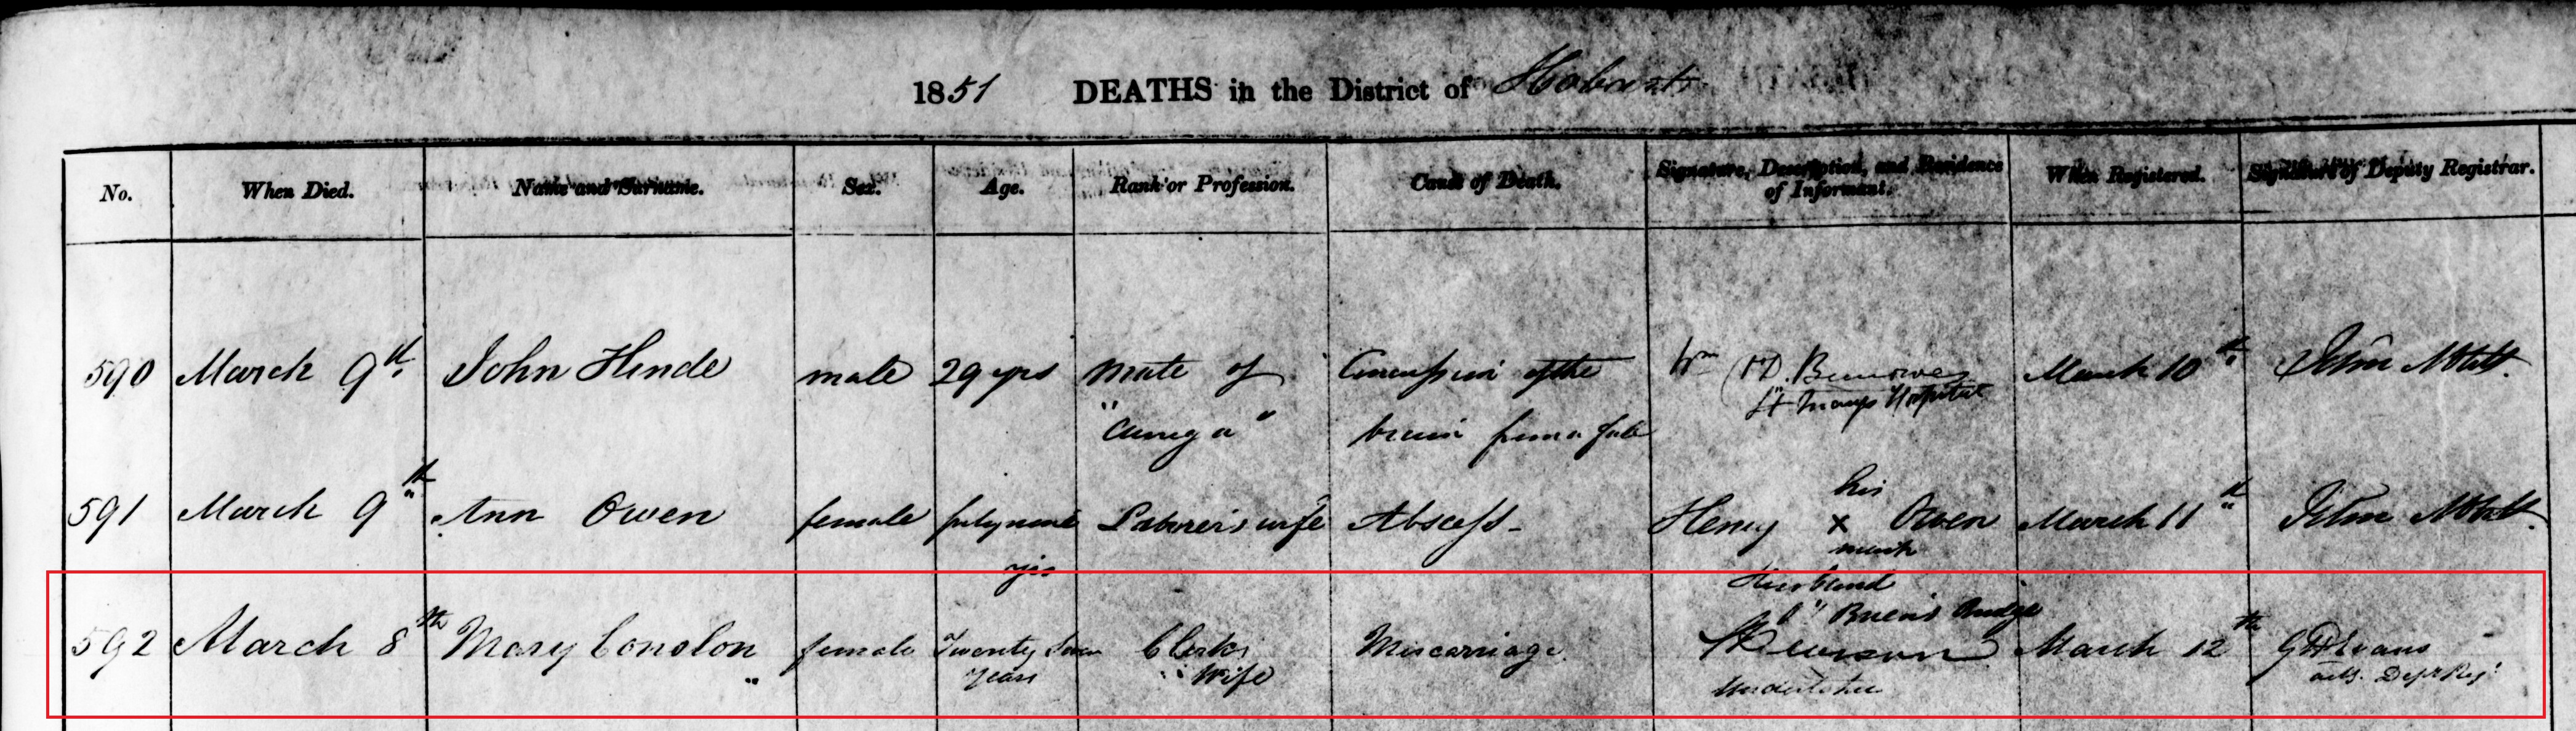 1851 DEATHS in the District of Hobart
No. When Died. Name and Surname. Sex. Age. Rank or Profession. Cause of Death. Signature, Description, and Residence of Informant. When Registered. Signature of Deputy Registrar.
590 March 9th John Hinde male 29 yrs Mate of Concussion of the Wm March 10th John
" " brain from a fall Hospital
591 March 9th Ann Owen female years Laborer's wife Abscess Henry his x mark Owen March 11th John
yrs Husband
O" Brien's Bridge
592 March 8th Mary Conolon female Twenty Seven Clerks Miscarriage March 12th Evans
years Wife Undertaker Dep Reg